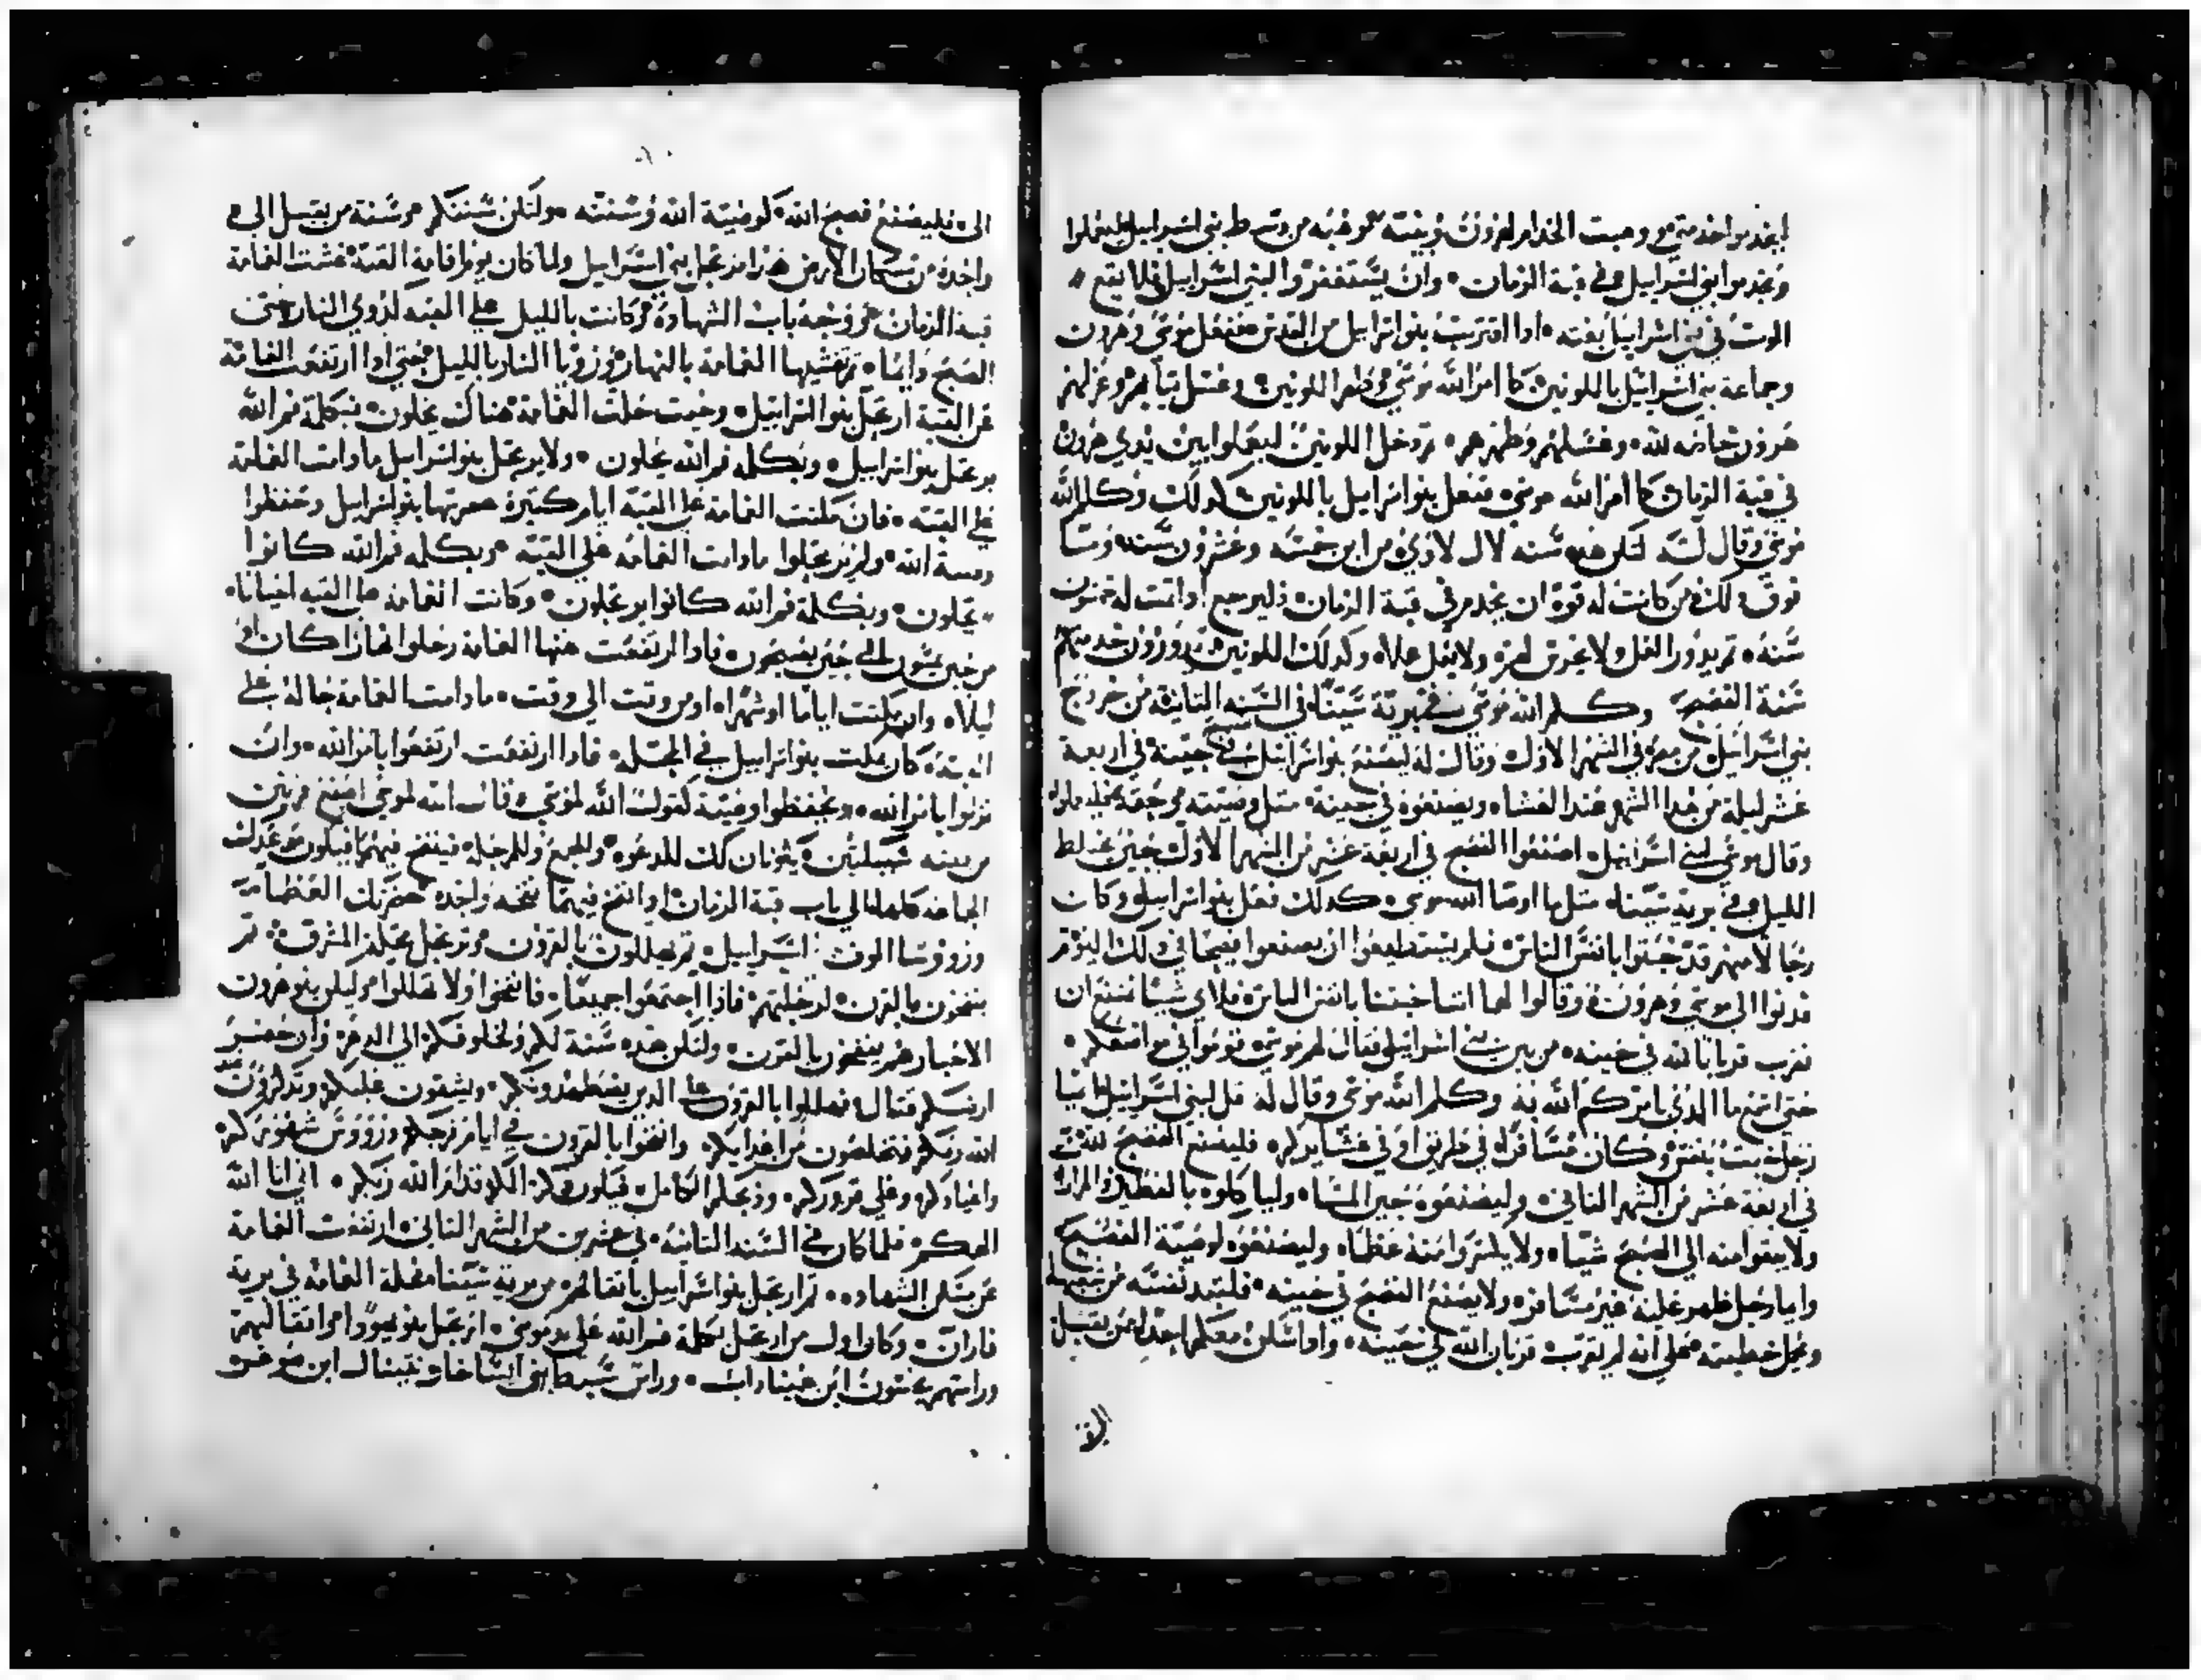 ليخدموا خدمتي ووهبت الخدام لهرون وبنيه موهبه من وسط بني اسراييل ليعملوا
ويخدموا بني اسراييل في قبة الزمان وان يستغفروا لبني اسراييل فلا يقع
الموت في بني اسراييل بغته ادا اقتربت بنوا اسراييل من القدس ففعل موسى وهرون
وجماعة بني اسراييل باللونين كما امر الله موسى وطهر اللونين وغسل تيابهم وعزلهم
هرون خاصه لله وغسلهم وطهرهم تم دخل اللونين ليعملوا بين يدي هرون
في قبة الزمان كما امر الله موسى ففعل بنوا اسراييل باللونين كدلك وكلم الله
موسى وقال له لتكن هده سنه لال لاوي من ابن خمسه وعشرون سنه وسا
فوق دلك من كانت له قوة ان يخدم في قبة الزمان فليرجع ادا تمت له خمسون
سنه تم يدور العمل ولا يعمل عملا وكدلك اللونين
سنة الفصح وكلم الله موسى في برية سينا في السنه التانية من خروج
بني اسراييل من مصر في الشهر الاول وقال له ليصنع بنوا اسراييل فصح حينه في اربعة
عشر ليلة من هدا الشهر عند العشاء ويصنعوه في حينه متل وصيته
وقال موسى لبني اسراييل اصنعوا الفصح في اربعة عشر من الشهر الاول حين يختلط
الليل في برية سينا متل ما اوصا الله موسى كدلك فعل بنوا اسراييل وكان
رجالا منهم قد تنجسوا بانفس الناس فلم يستطيعوا ان يصنعوا فصحا في دلك اليوم
فدنوا الى موسى وهرون وقالوا لهما اننا تنجسنا بانفس الناس فلاي شيا نمنع ان
نقرب قربانا لله في حينه من بين بني اسراييل فقال لهم موسى قوموا في مواضعكم
حتى اسمع ما الدي يامركم الله به وكلم الله موسى وقال له قل لبني اسراييل ايما
رجل وكان مسافرا في طريق او في عشايركم فليصنع الفصح لله
في اربعة عشر من الشهر التاني وليصنعوه حين المساء ولياكلوه بالفطير والمرار
ولا يبقوا منه الي الصبح شيا ولا يكسروا منه عظما وليصنعوه لوصية الفصح
وايما رجل طهر غير مسافر ولا يصنع الفصح في حينه فلتبيد نفسه من شعبها
ويحمل خطيته على انه لم يقرب قربان الله في حينه وادا سكن معكم احد ممن يقبل
الي
الى فليصنع فصح الله كوصية الله وسنته ولتكن سنتكم سنة من يقبل الى
واحدة من سكان الارض بني اسراييل ولما كان يوم اقامة القبة غشت الغمامة
قبة الزمان باب الشهادة وكانت بالليل على القبه لروي النار حتى
الصبح دايما تغشيها الغمامة بالنهار ورويا النار بالليل حتى ادا ارتفعت الغمامة
عن القبة ارتحل بنوا اسراييل وحيت حلت الغمامة هناك يحلون بكلمة فم الله
يرتحل بنوا اسراييل وبكلمة فم الله يحلون ولا يرتحل بنوا اسراييل ما دامت الغمامة
على القبه فان مكتت الغمامة على القبه ايام كتيرة بنوا اسراييل وحفظوا
وصية الله ولم يرتحلوا ما دامت الغمامه على القبة وبكلمه فم الله كانوا
يحلون وبكلمة فم الله كانوا يرتحلون وكانت الغمامة على القبه احيانا
من حين يمسون الي حين يصبحون فادا ارتفعت عنها الغمامة رحلوا نهارا كان او
ليلا وان مكتت اياما او شهرا او من وقت الي وقت ما دامت الغمامة حالة على
القبة كان يمكت بنوا اسراييل في المحله فادا ارتفعت ارتفعوا بامر الله وان
نزلوا بامر الله وحفظوا وصية لقول الله لموسى وقال الله لموسى اصنع قرنين
من فضه يكونان لك للدعوه وللجمع وللرحله فينفخ فيهما فيكون
الجماعه كلها الي باب قبة الزمان ادا نفخ فيهما نفخه واحده العظما
وروسا الوف اسراييل تم يهللون بالقرون يرتحل المشرق تم
ينفخون بالقرن لرحلتهم فادا اجتمعوا جميعا فانفخوا ولا تهللوا وليكن بنو هرون
الاحبار هم ينفخون بالقرن ولتكن هده سنة لكم ولخلوفكم الى الدهر وان حضر
ارضكم قتال فهللوا بالقرون على الدين يضطهدونكم ويشقون عليكم وتدكرون عند
الله ربكم فتخلصون من اعدايكم وانفخوا بالقرون في ايام فرحكم وروس شهوركم
واعيادكم وعلى قرورركم ودبحكم الكامل فيكون قدام الله ربكم اني انا الله
الهكم فلما كان في السنه التانيه في عشرين من الشهر التاني ارتفعت الغمامة
عن مسكن الشهاده تم ارتحل بنوا اسراييل باتقالهم من برية سينا الغمامة في برية
فاران وكان اول من ارتحل بكلمة فم الله على يد موسى ارتحل بنو يهودا
وراسهم نحشون ابن عميناداب وراس سبط بني ايساخار نتينال ابن صوغر